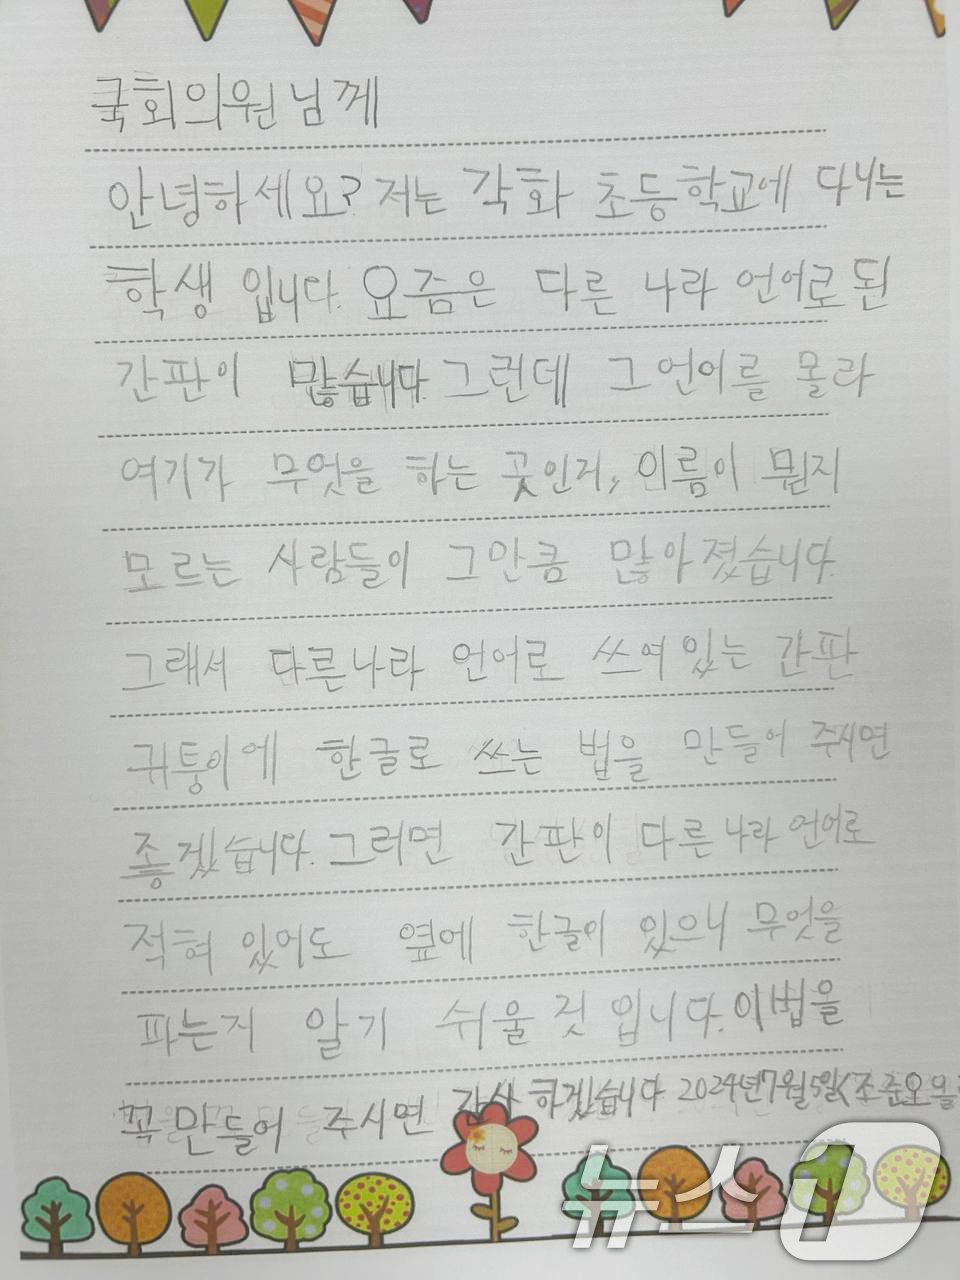 국회의원님께
안녕하세요? 저는 각화 초등학교에 다니는
학생 입니다. 요즘은 다른 나라 언어로 된
간판이 많습니다. 그런데 그 언어를 몰라
여기가 무엇을 하는 곳인거, 이름이 뭔지
모르는 사람들이 그만큼 많아 졌습니다.
그래서 다른나라 언어로 쓰여 있는 간판
귀퉁이에 한글로 쓰는 법을 만들어 주시면
좋겠습니다. 그러면 간판이 다른 나라 언어로
적혀 있어도 옆에 한글이 있으니 무엇을
파는지 알기 쉬울 것 입니다. 이법을
꼭 만들어 주시면 감사 하겠습니다 2024년 7월 5일 (조준오 올
뉴스1